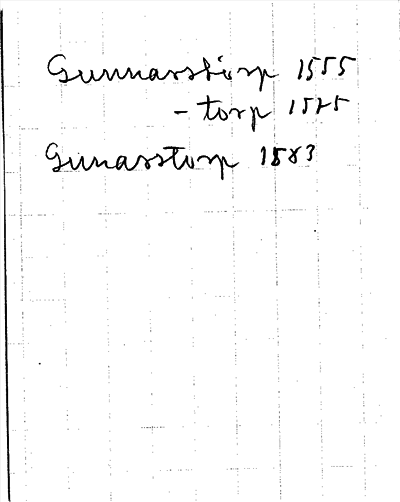 Gunnarstorp 1555
- torp 1575
Gunarstorp 1583